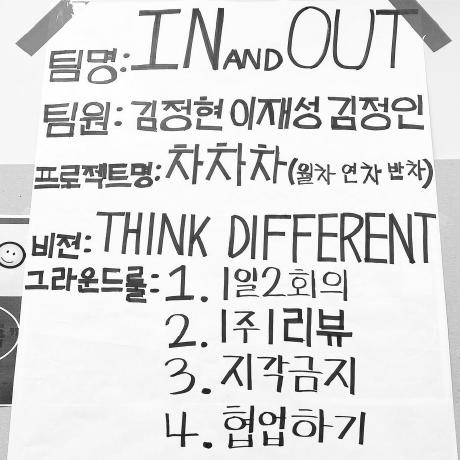 팀명: IN AND OUT
팀원: 김정현 이재성 김정인
프로젝트명: 차차차(월차 연차 반차)
비전: THINK DIFFERENT
그라운드룰: 1. 1일2회의
2. 1주1리뷰
3. 지각금지
4. 협업하기